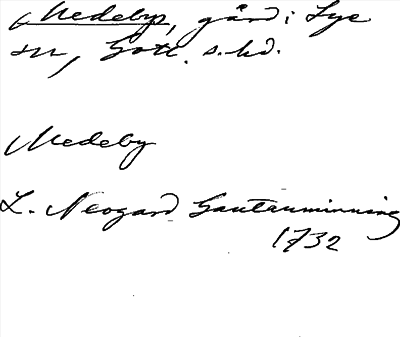 Medebys, gård i Lye
sn, Gotl. s. hd.
Medeby
L. Neogard Gautauminning
1732